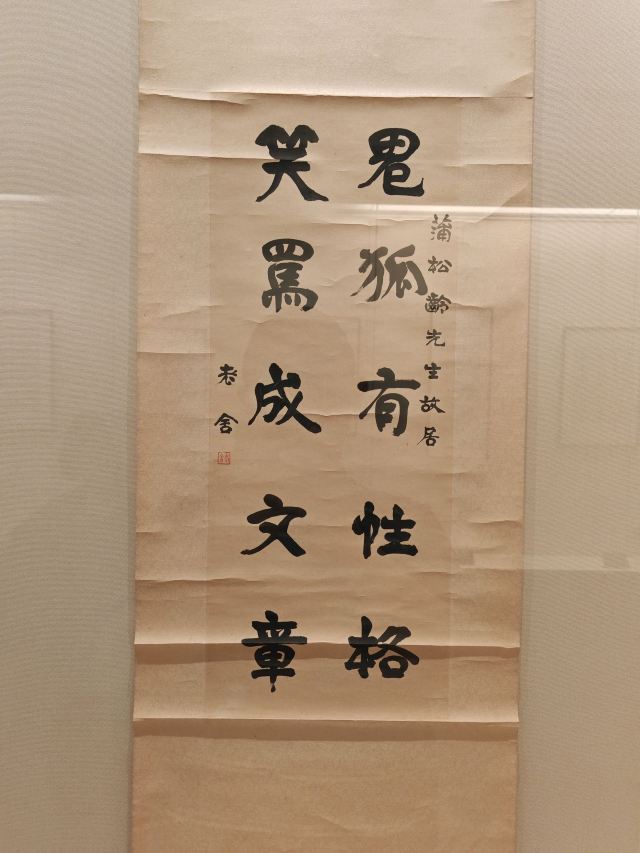 蒲松齡先生故居
鬼狐有性格
笑罵成文章
老舍